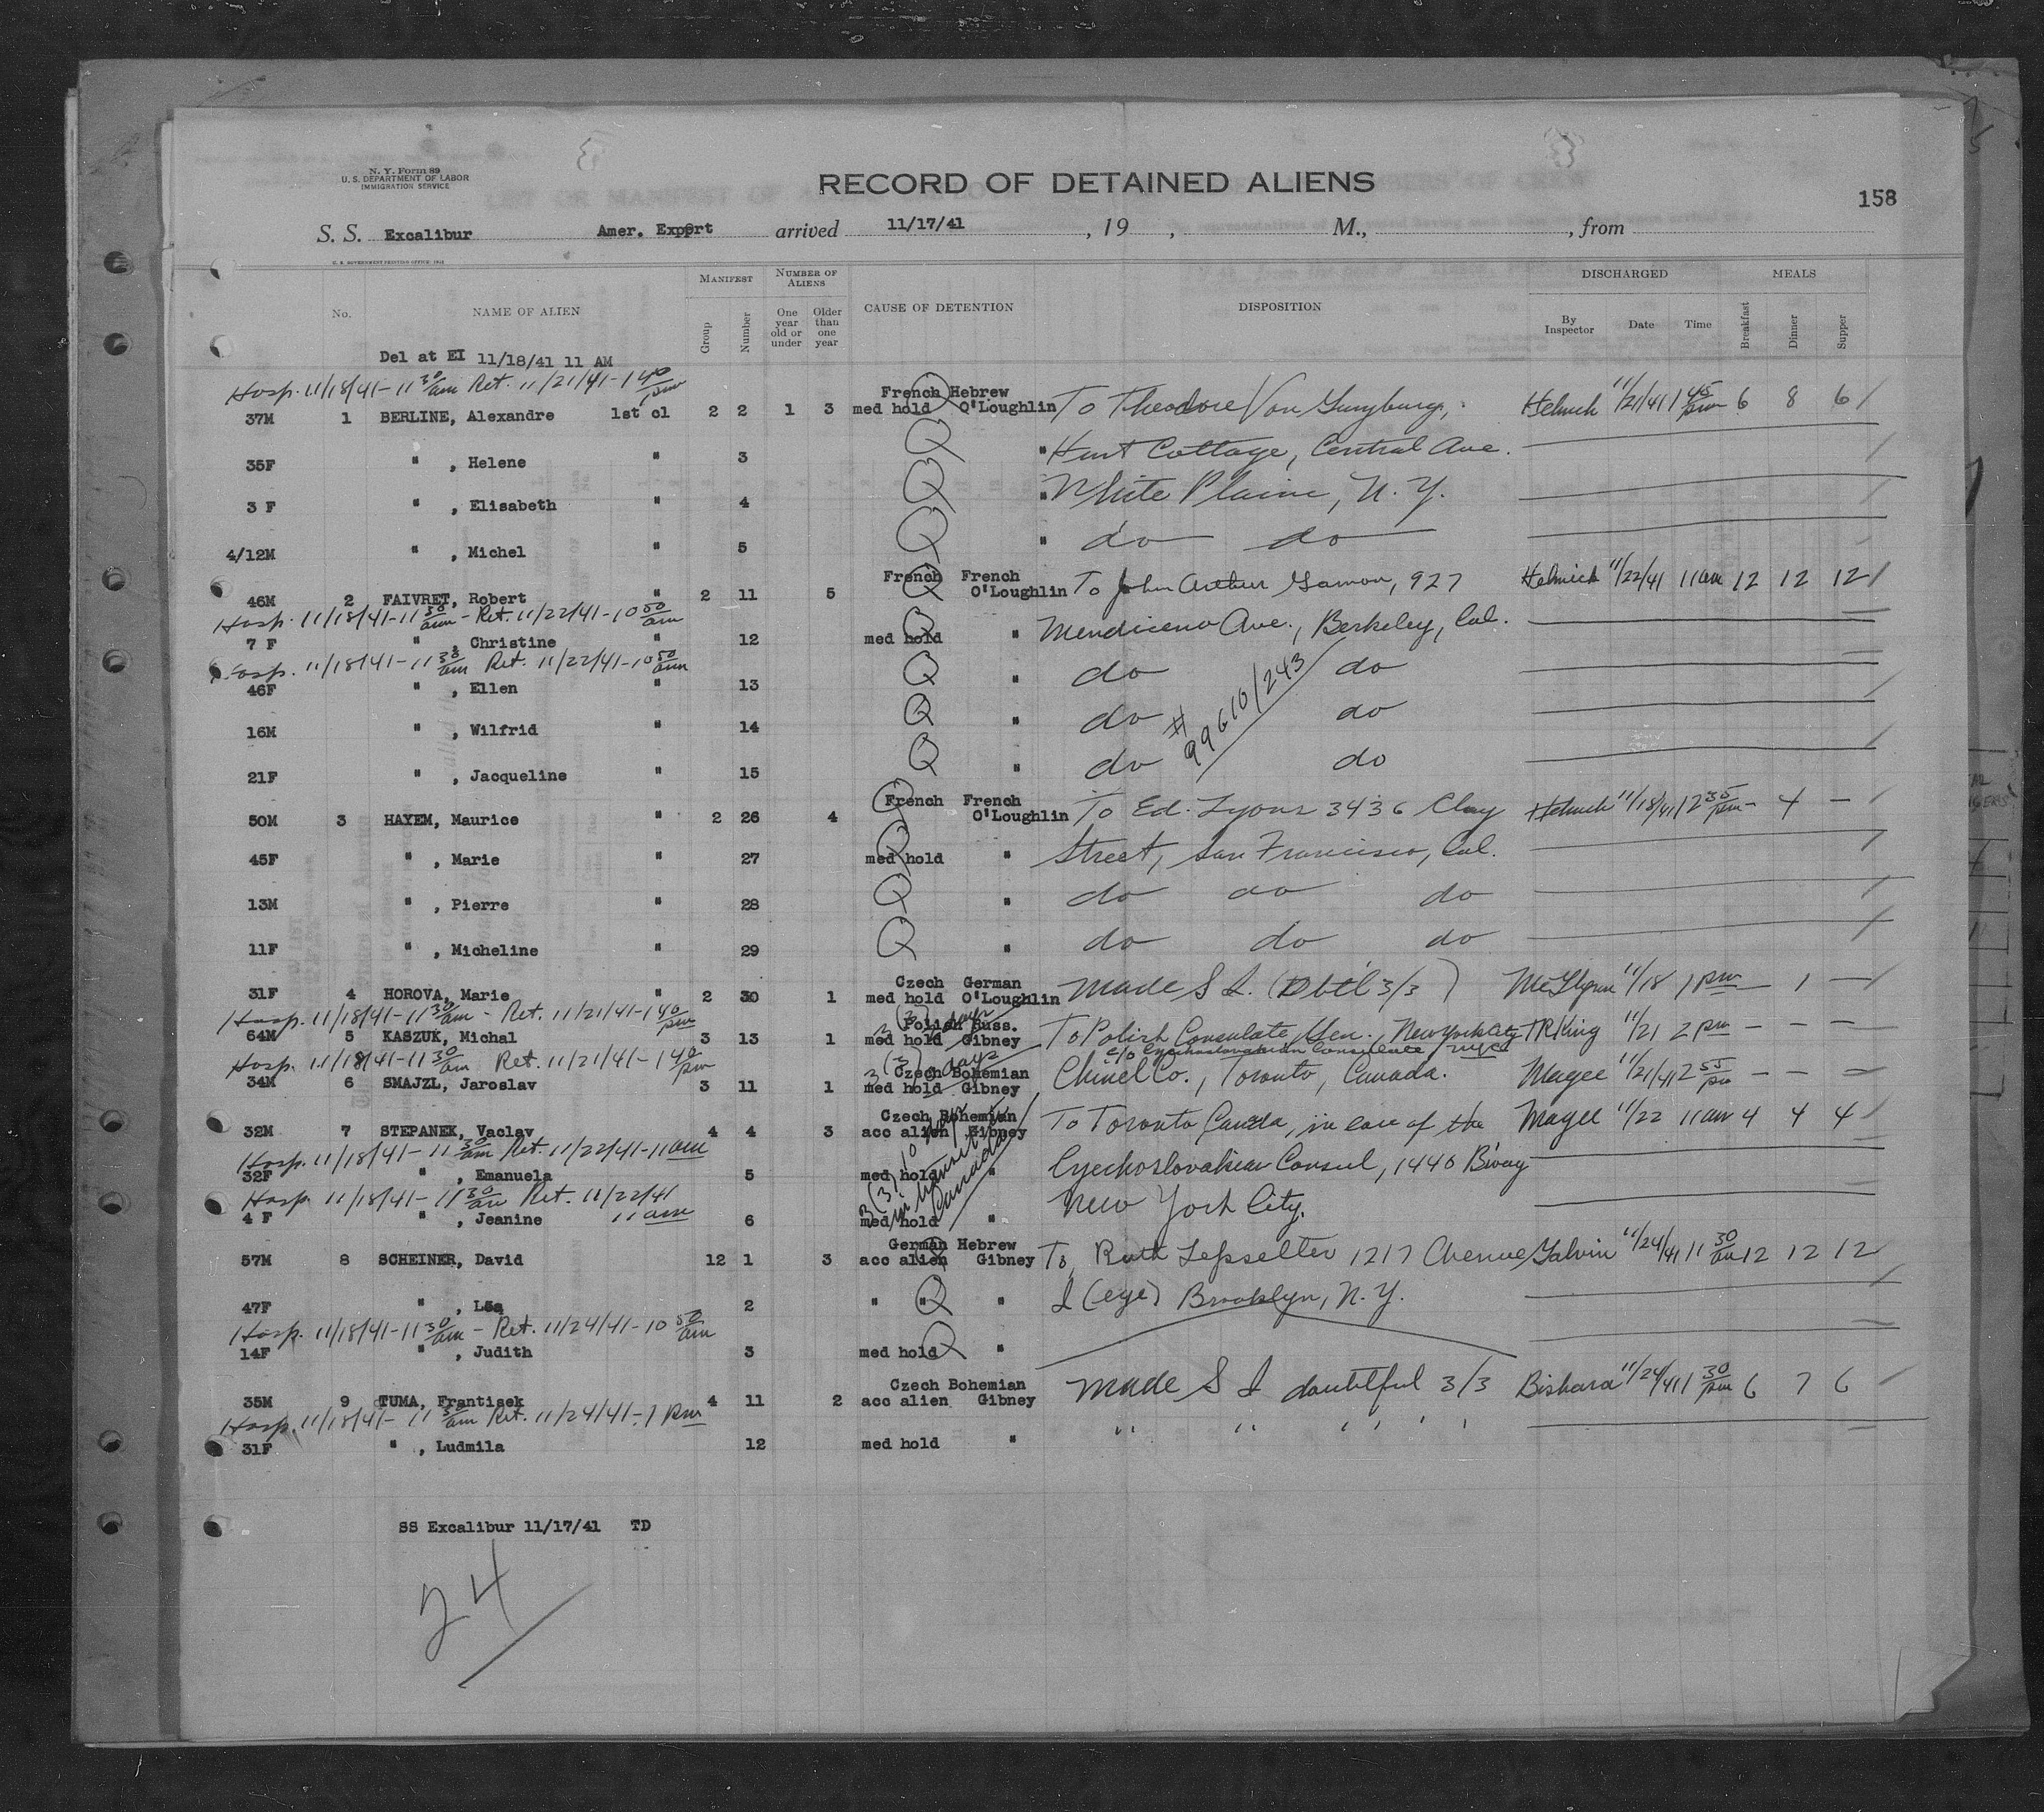 N. Y. Form 89
U. S. DEPARTMENT OF LABOR
IMMIGRATION SERVICE
RECORD OF DETAINED ALIENS
158
S. S. Excalibur Amer. Export arrived 11/17/41 , 19 , M., , from
NAME OF ALIEN No. MANIFEST Group Number NUMBER OF ALIENS One year old or under Older than one year CAUSE OF DETENTION DISPOSITION DISCHARGED By Inspector Date Time MEALS Breakfast Dinner Supper
Del at EI 11/18/41 11 AM
Hosp. 11/18/41 - 11 30 am Ret. 11/21/41 - 1 40 pm
French Hebrew
37M 1 BERLINE, Alexandre 1st cl 2 2 1 3 med hold O'Loughlin To Theodore Von Helwich 11/21/41 1 45 pm 6 8 6 /
35F " , Helene " 3 Q " Hunt Cottage, Central Ave.
3 F " , Elisabeth " 4 Q " White Plains, N. Y.
4/12M " , Michel " 5 Q " do do
French French
46M 2 FAIVRET, Robert " 2 11 5 Q O'Loughlin To John Arthur Gamon, 927 Helwich 11/22/41 11 am 12 12 12 /
Hosp. 11/18/41 - 11 30 am - Ret. 11/22/41 - 10 50 am
7 F " , Christine " 12 med hold " Ave., Berkeley, Cal.
Hosp. 11/18/41 - 11 30 am Ret. 11/22/41 - 10 50 am
46F " , Ellen " 13 Q " do do
16M " , Wilfrid " 14 Q " do do
# 99610/243
21F " , Jacqueline " 15 Q " do do
French French
50M 3 HAYEM, Maurice " 2 26 4 O'Loughlin To Ed. Lyons 3436 Clay Helwich 11/18/41 2 35 pm - 4 - /
45F " , Marie " 27 med hold " Street, San Francisco, Cal.
13M " , Pierre " 28 Q " do do do
11F " , Micheline " 29 Q " do do do
Czech German
31F 4 HOROVA, Marie " 2 30 1 med hold O'Loughlin Made S I. (Dbtl 3/3) 11/18 1 pm - 1 - /
Hosp. 11/18/41 - 11 30 am - Ret. 11/21/41 - 1 40 pm
Polish Russ.
64M 5 KASZUK, Michal 3 13 1 med hold Gibney To Polish Consulate Gen., New York City TR King 11/21 2 pm - - -
Hosp. 11/18/41 - 11 30 am Ret. 11/21/41 - 1 40 pm
3 (3) days
c/o Czechoslovakian Consulate, NYC
Czech Bohemian
34M 6 SMAJZL, Jaroslav 3 11 1 med hold Gibney Co., Toronto, Canada. Magee 11/21/41 2 55 pm - - -
Czech Bohemian
32M 7 STEPANEK, Vaclav 4 4 3 acc alien Gibney To Toronto Canada, in care of the Magee 11/22 11 am 4 4 4 /
Hosp. 11/18/41 - 11 30 am Ret. 11/22/41 - 11 am
32F " , Emanuela 5 med hold " Czechoslovakian Consul, 1440 B'way
3 (3) 10 days in transit to Canada
Hosp. 11/18/41 - 11 30 am Ret. 11/22/41 11 am
4 F " , Jeanine 6 med hold " New York City.
German Hebrew
57M 8 SCHEINER, David 12 1 3 acc alien Gibney To Ruth 1217 Galvin 11/24/41 11 30 am 12 12 12
47F " , Léa 2 " " Q " I (eye) Brooklyn, N. Y.
Hosp. 11/18/41 - 11 30 am - Ret. 11/24/41 - 10 50 am
14F " , Judith 3 med hold Q "
Czech Bohemian
35M 9 TUMA, Frantisek 4 11 2 acc alien Gibney Made S I doubtful 3/3 Bishara 11/24/41 1 30 pm 6 7 6 /
Hosp. 11/18/41 - 11 30 am Ret. 11/24/41 - 1 pm
31F " , Ludmila 12 med hold " " " " " "
SS Excalibur 11/17/41 TD
24